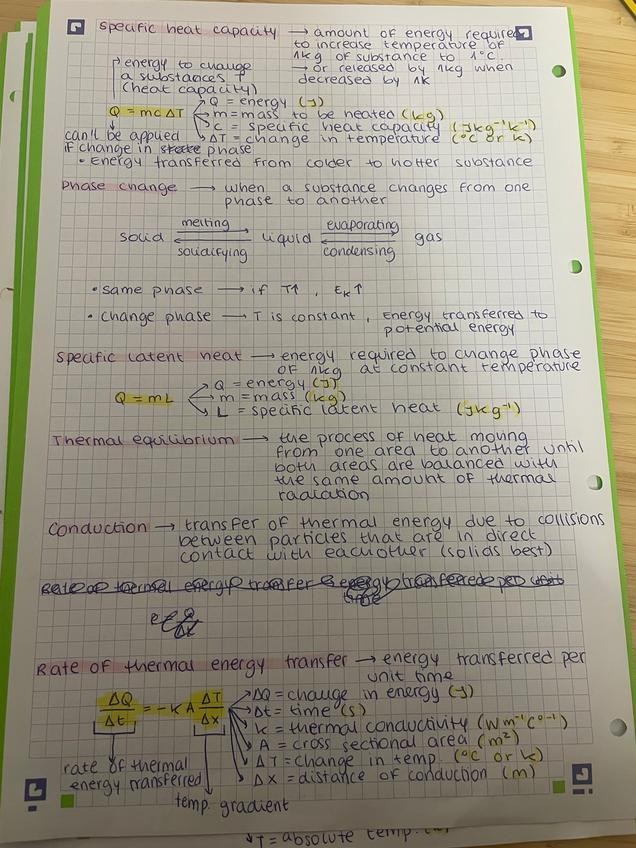 specific heat capacity → amount of energy required
to increase temperature of
1kg of substance to 1°C.
→ or released by 1kg when
decreased by 1K
energy to change
a substances T
(heat capacity)
Q = mcΔT
Q = energy (J)
m = mass to be heated (kg)
c = specific heat capacity (Jkg⁻¹K⁻¹)
ΔT = change in temperature (°C or K)
can't be applied
if change in state phase
• Energy transferred from colder to hotter substance
Phase change → when a substance changes from one
phase to another
solid melting liquid evaporating gas
solidifying condensing
• same phase → if T↑, Eₖ↑
• change phase → T is constant, Energy transferred to
potential energy
specific latent heat → energy required to change phase
of 1kg at constant temperature
Q = mL
Q = energy (J)
m = mass (kg)
L = specific latent heat (Jkg⁻¹)
Thermal equilibrium → the process of heat moving
from one area to another until
both areas are balanced with
the same amount of thermal
radiation
Conduction → transfer of thermal energy due to collisions
between particles that are in direct
contact with eachother (solids best)
Rate of thermal energy transfer energy transfered per unit
time
Rate of thermal energy transfer → energy transferred per
unit time
ΔQ/Δt = -KA ΔT/Δx
ΔQ = change in energy (J)
Δt = time (s)
K = thermal conductivity (Wm⁻¹C°⁻¹)
A = cross sectional area (m²)
ΔT = change in temp. (°C or K)
Δx = distance of conduction (m)
rate of thermal
energy transferred
temp. gradient
T = absolute temp.